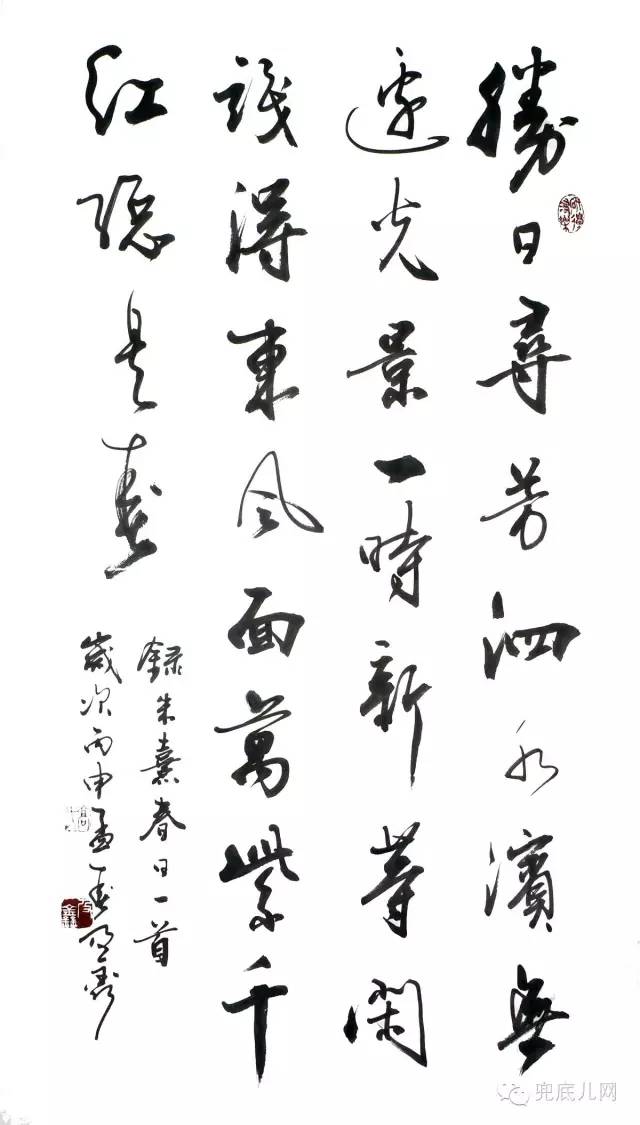 勝日尋芳泗水濱無
邊光景一時新等閑
識得東風面萬紫千
紅總是春
錄朱熹春日一首
歲次丙申孟春
兜底儿网